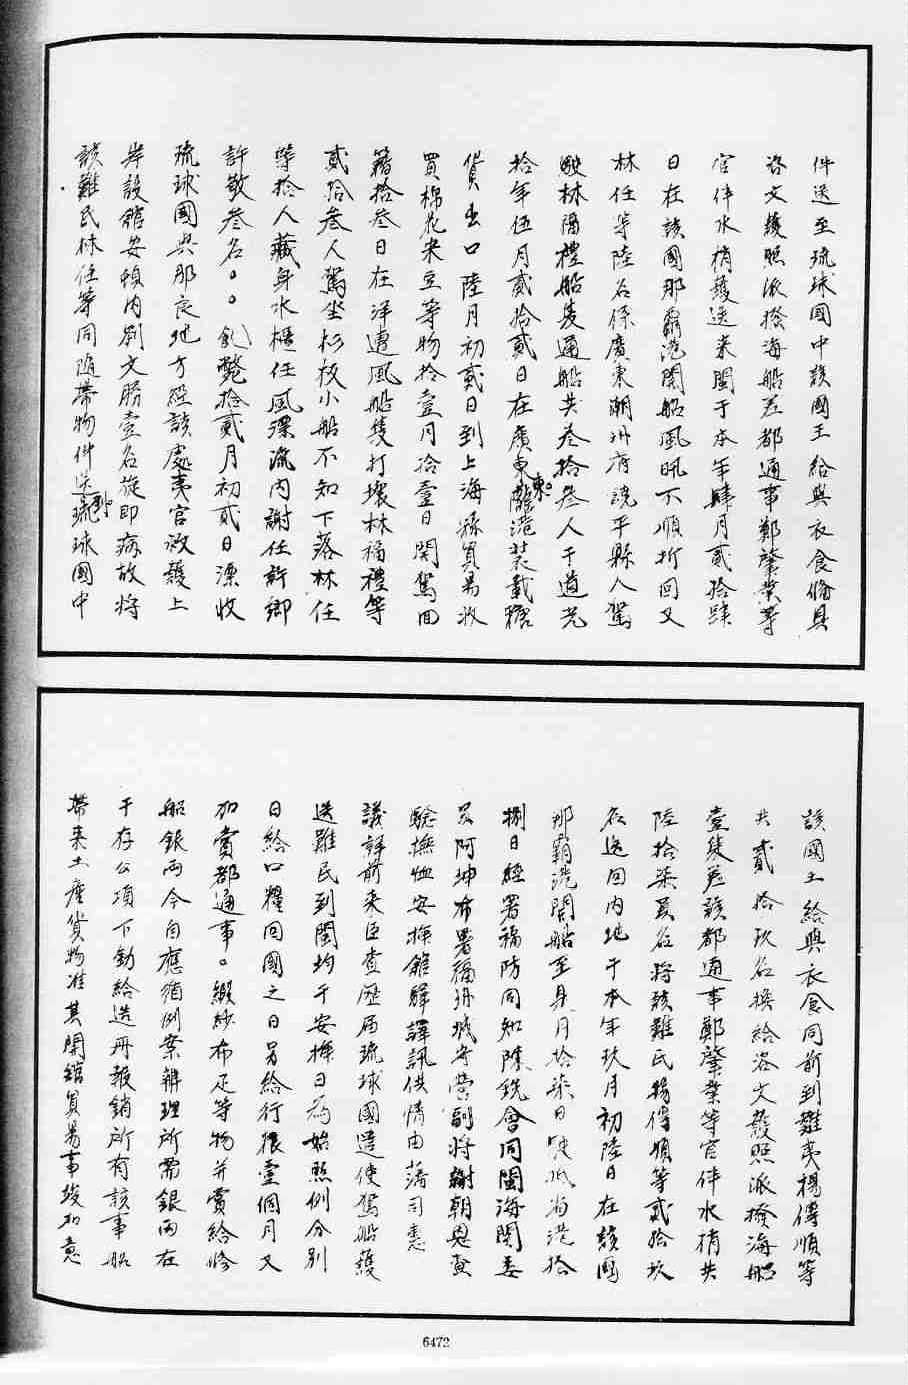 件送至琉球國中該國王給與衣食俻具
咨文護照派撥海船差都通事鄭肇業等
官伴水梢護送來閩于本年肆月貳拾肆
日在該國那霸港開船風汛不順折回又
林任等陸名係廣東潮州府饒平縣人駕
駛林福禮船隻通船共叁拾叁人于道光
拾年伍月貳拾貳日在廣東東隴港裝載糖
貨出口陸月初貳日到上海縣貿易收
買棉花米豆等物拾壹月拾壹日開駕回
籍拾叁日在洋遭風船隻打壞林福禮等
貳拾叁人駕坐杉板小船不知下落林任
等拾人藏身水櫃任風漂流內謝任許鄉
許敬叁名飢斃拾貳月初貳日漂收
琉球國與那良地方經該處夷官救護上
岸設館安頓內劉文勝壹名旋即病故將
該難民林任等同隨帶物件送到琉球國中
該國王給與衣食同前到難夷楊得順等
共貳拾玖名換給咨文護照派撥海船
壹隻差該都通事鄭肇業等官伴水梢共
陸拾柒員名將該難民楊得順等貳拾玖
名送回內地于本年玖月初陸日在該國
那霸港開船至是月拾柒日駛抵省港拾
捌日經署福防同知陳銑會同閩海關委
員阿坤布署福州城守營副將謝朝恩查
驗撫恤安插館驛譯訊供情由藩司惠
議詳前來臣查歷届琉球國遣使駕船護
送難民到閩均于安插日為始照例分別
日給口糧回國之日另給行粮壹個月又
加賞都通事緞紗布疋等物并賞給修
船銀兩今自應循例案辦理所需銀兩在
于存公項下動給造冊報銷所有該事船
帶來土產貨物准其開館貿易事竣加意
6472